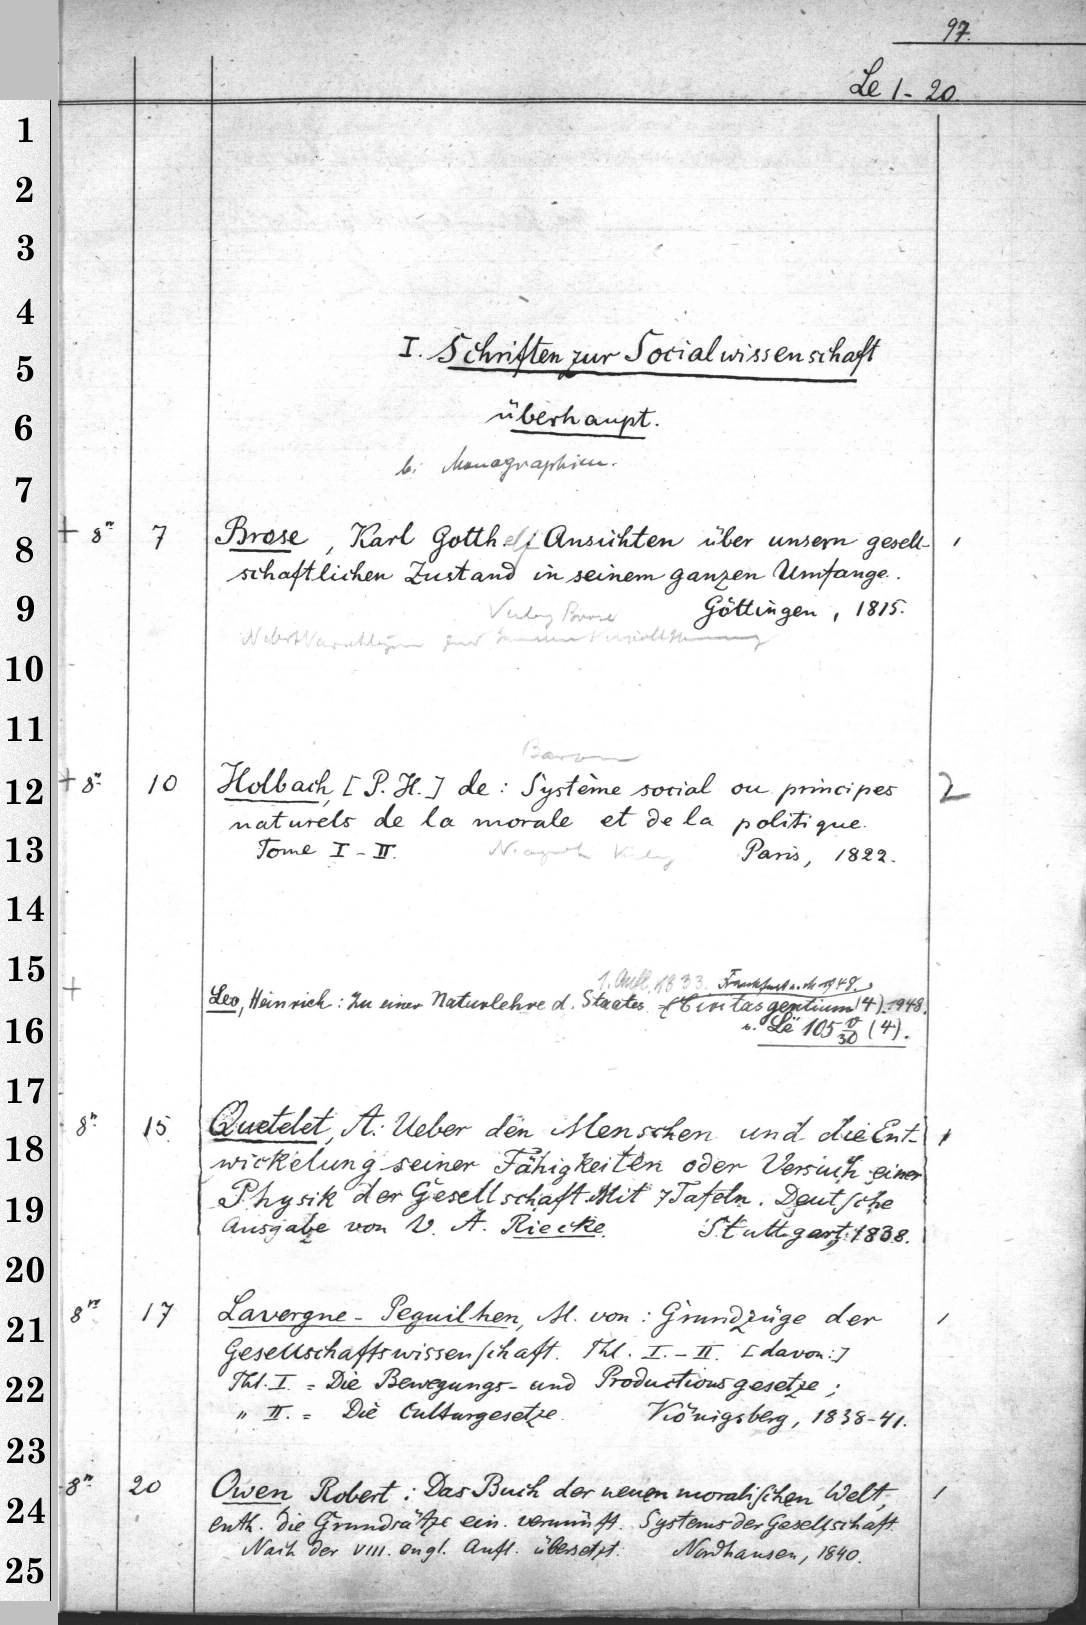 97.
Le 1-20.
1
2
3
4
I. Schriften zur Socialwissenschaft
5
überhaupt.
6
b: Monographien.
7
+ 8° 7 Brose, Karl Gotthelf Ansichten über unsern gesell- 1
8
schaftlichen Zustand in seinem ganzen Umfange.
9
Verlag Brose Göttingen, 1815.
10
11
Baron
+ 8° 10 Holbach, [P. H.] de: Système social ou principes 2
12
naturels de la morale et de la politique.
13
Tome I - II. Verlag Paris, 1822.
14
15
+ 1. Aufl. 1833. Frankfurt a. M 1948.
Leo, Heinrich: Zu einer Naturlehre d. Staates (Civitas gentium (4) 1948.
16
s. Lë 105 v/30 (4).
17
8° 15 Quetelet, A: Ueber den Menschen und die Ent- 1
18
wickelung seiner Fähigkeiten oder Versuch einer
19
Physik der Gesellschaft. Mit 7 Tafeln. Deutsche
Ausgabe von V. A. Riecke. Stuttgart, 1838.
20
8° 17 Lavergne-Peguilhen, M. von: Grundzüge der 1
21
Gesellschaftswissenschaft. Thl. I.-II. [davon:]
22
Thl. I. = Die Bewegungs- und Productionsgesetze;
" II. = Die Culturgesetze. Königsberg, 1838-41.
23
8° 20 Owen Robert: Das Buch der neuen moralischen Welt, 1
24
enth. die Grundsätze ein. vernünft. Systems der Gesellschaft.
Nach der VIII. engl. Aufl. übersetzt. Nordhausen, 1840.
25